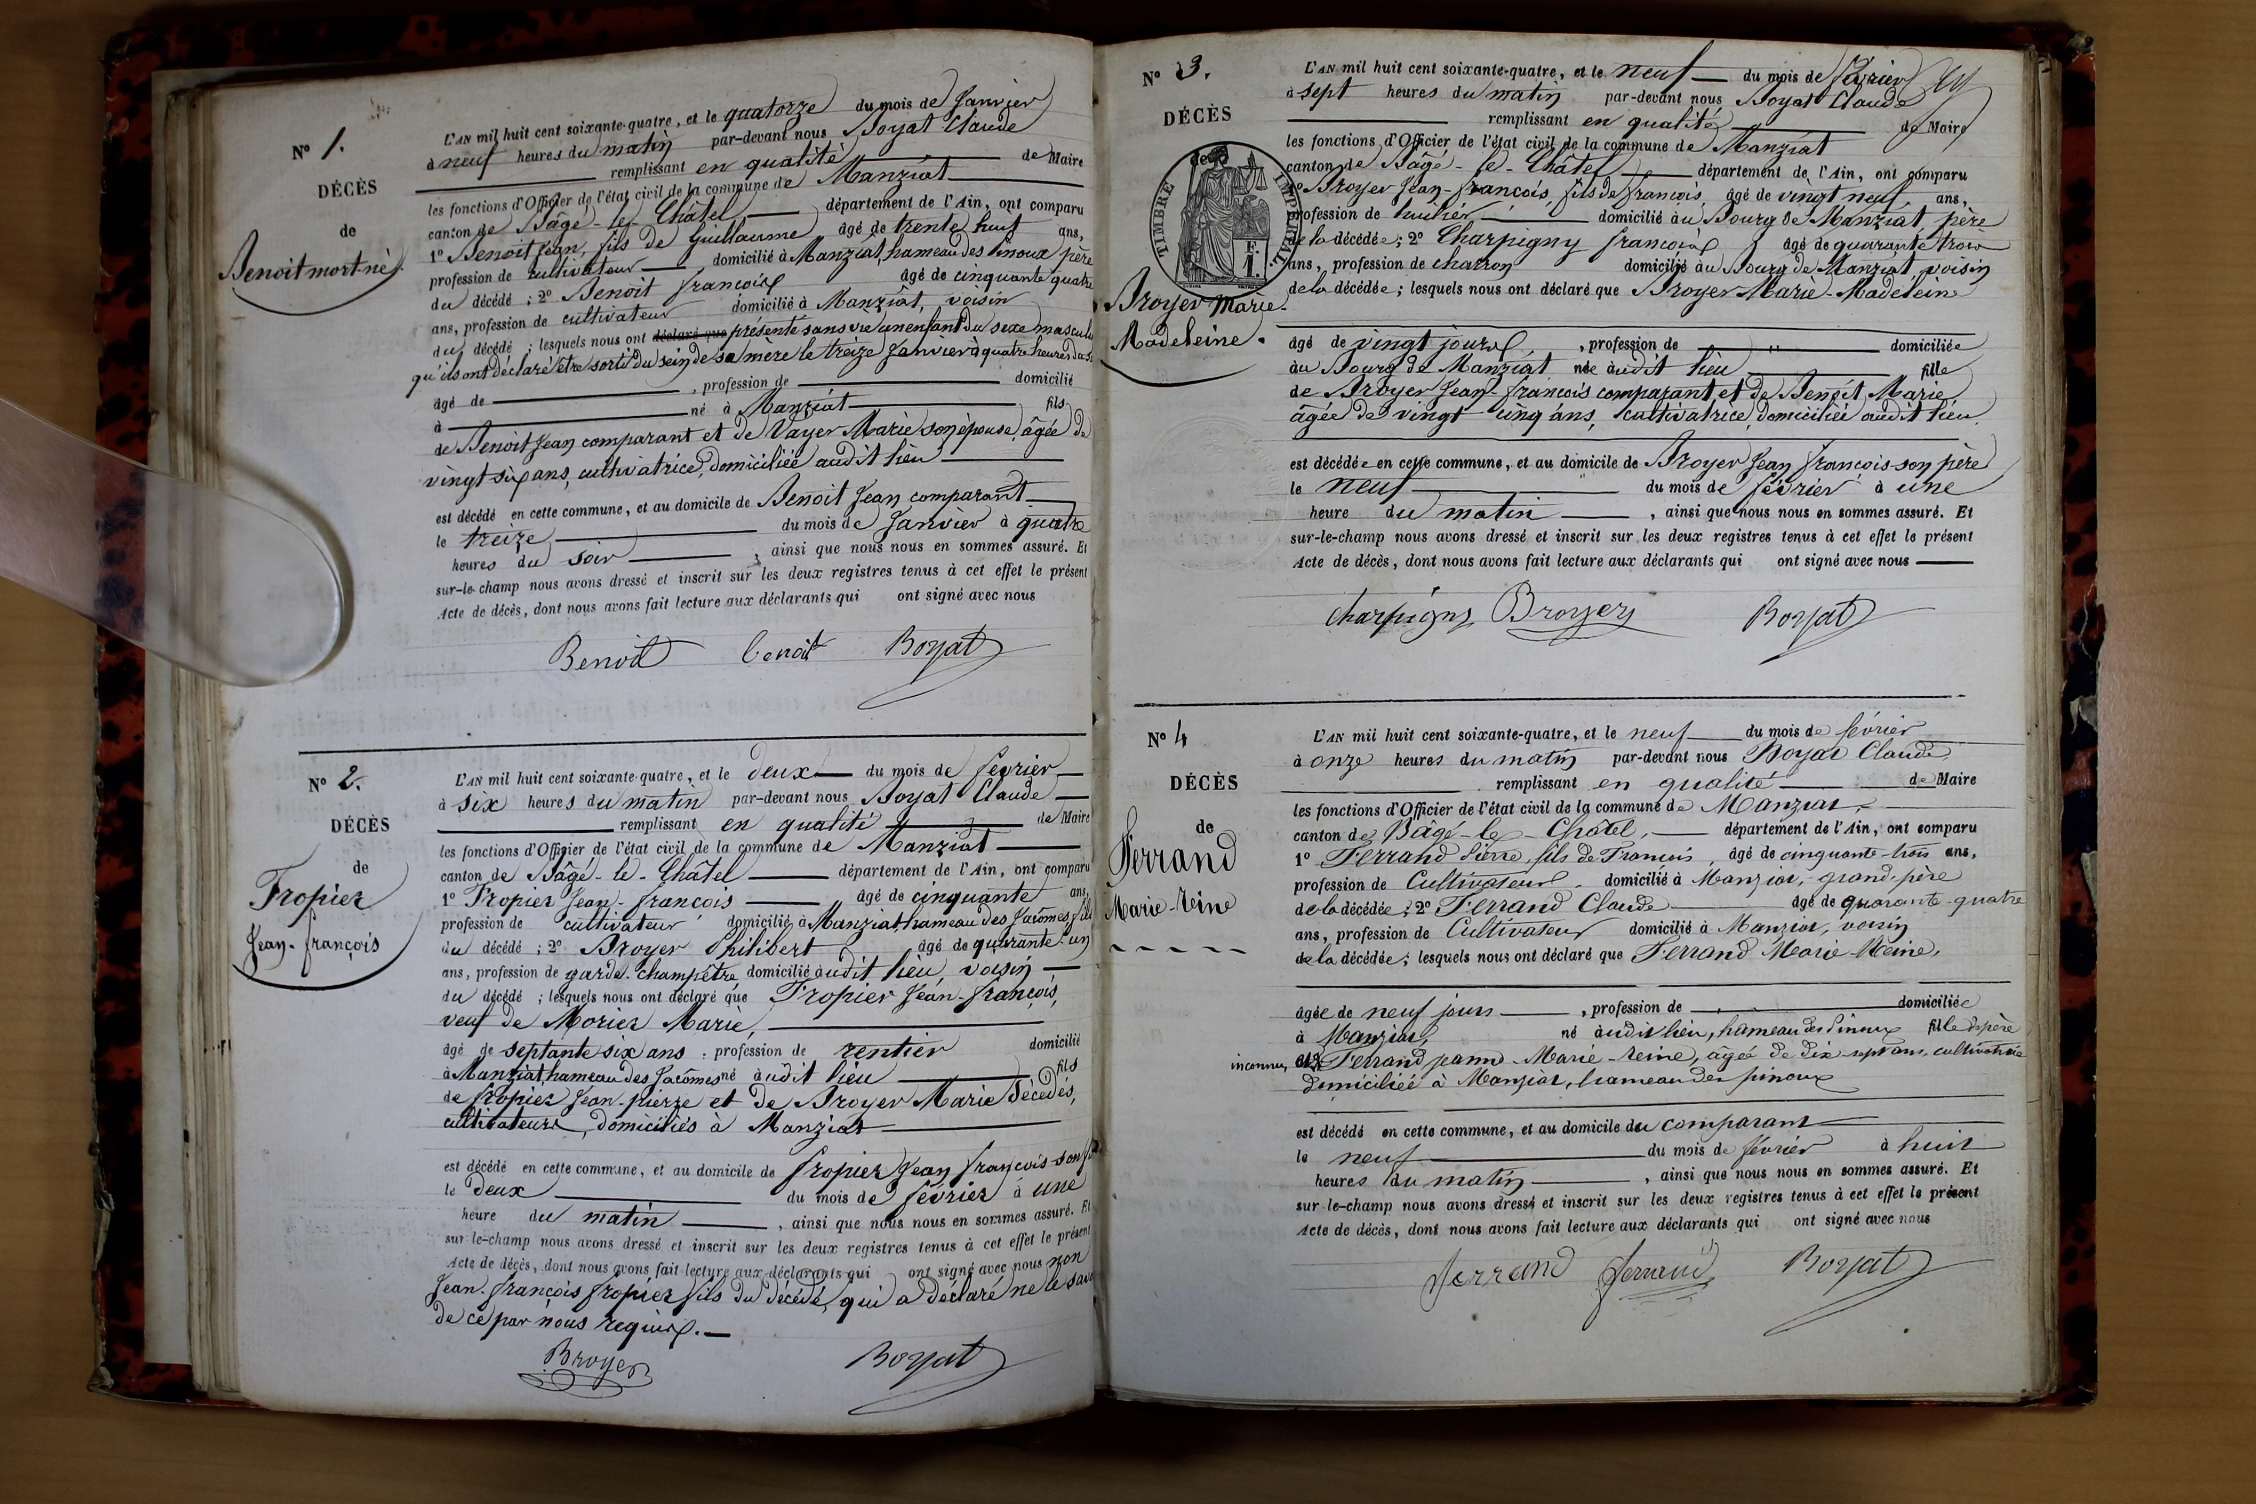 N° 1.
DÉCÈS
de
Benoit mort né.
L'AN mil huit cent soixante-quatre, et le quatorze du mois de Janvier
à neuf heures du matin par-devant nous Boyat Claude
remplissant en qualité de Maire
les fonctions d'Officier de l'état civil de la commune de Manziat
canton de Bâgé-le-Châtel département de l'Ain, ont comparu
1° Benoit Jean, fils de Guillaume âgé de trente huit ans,
profession de cultivateur domicilié à Manziat, hameau des pinoux père
du décédé ; 2° Benoit françois âgé de cinquante quatre
ans, profession de cultivateur domicilié à Manziat, voisin
du décédé ; lesquels nous ont déclaré que présenté sans vie un enfant du sexe mascul
qu'ils ont déclaré être sorti du sein de sa mère le treize Janvier à quatre heures du s
âgé de , profession de domicilié
à né à Manziat fils
de Benoit Jean comparant et de Vayer Marie son épouse, âgée de
vingt six ans, cultivatrice, domiciliée audit lieu
est décédé en cette commune, et au domicile de Benoit Jean comparant
le treize du mois de Janvier à quatre
heures du soir , ainsi que nous nous en sommes assuré. Et
sur-le-champ nous avons dressé et inscrit sur les deux registres tenus à cet effet le présent
Acte de décès, dont nous avons fait lecture aux déclarants qui ont signé avec nous
Benoit benoit Boyat
N° 2.
DÉCÈS
de
Fropier
Jean-françois
L'AN mil huit cent soixante-quatre, et le deux du mois de février
à six heures du matin par-devant nous Boyat Claude
remplissant en qualité de Maire
les fonctions d'Officier de l'état civil de la commune de Manziat
canton de Bâgé-le-Châtel département de l'Ain, ont comparu
1° Fropier Jean-françois âgé de cinquante ans,
profession de cultivateur domicilié à Manziat hameau des Jacômes, fils
du décédé ; 2° Broyer Philibert âgé de quarante-un
ans, profession de garde-champêtre domicilié audit lieu, voisin
du décédé ; lesquels nous ont déclaré que Fropier Jean-françois,
veuf de Morier Marie,
âgé de septante six ans , profession de rentier domicilié
à Manziat, hameau des Jacômes né audit lieu fils
de fropier Jean-pierre et de Broyer Marie décédés,
cultivateurs, domiciliés à Manziat
est décédé en cette commune, et au domicile de fropier Jean françois son fils
le deux du mois de février à une
heure du matin , ainsi que nous nous en sommes assuré. Et
sur-le-champ nous avons dressé et inscrit sur les deux registres tenus à cet effet le présent
Acte de décès, dont nous avons fait lecture aux déclarants qui ont signé avec nous non
Jean-françois fropier fils du décédé, qui a déclaré ne le savoir
de ce par nous requis.
Broyer Boyat
N° 3.
DÉCÈS
de
TIMBRE IMPÉRIAL.
F.
1.
Broyer Marie-
Madeleine.
L'AN mil huit cent soixante-quatre, et le neuf du mois de février
à sept heures du matin par-devant nous Boyat Claude
remplissant en qualité de Maire
les fonctions d'Officier de l'état civil de la commune de Manziat
canton de Bâgé-le-Châtel département de l'Ain, ont comparu
1° Broyer Jean-françois, fils de françois, âgé de vingt neuf ans,
profession de huilier domicilié au Bourg de Manziat, père
de la décédée ; 2° Charpigny françois âgé de quarante trois
ans, profession de charron domicilié au Bourg de Manziat, voisin
de la décédée ; lesquels nous ont déclaré que Broyer Marie-Madelein
âgé de vingt jours , profession de " domiciliée
au Bourg de Manziat née audit lieu fille
de Broyer Jean-françois comparant et de Benoit Marie
âgée de vingt cinq ans, cultivatrice, domiciliée audit lieu.
est décédée en cette commune, et au domicile de Broyer Jean françois son père
le neuf du mois de février à une
heure du matin , ainsi que nous nous en sommes assuré. Et
sur-le-champ nous avons dressé et inscrit sur les deux registres tenus à cet effet le présent
Acte de décès, dont nous avons fait lecture aux déclarants qui ont signé avec nous
Charpigny Broyer Boyat
N° 4
DÉCÈS
de
Ferrand
Marie-reine
L'AN mil huit cent soixante-quatre, et le neuf du mois de février
à onze heures du matin par-devant nous Boyat Claude
remplissant en qualité de Maire
les fonctions d'Officier de l'état civil de la commune de Manziat,
canton de Bâgé-le-Châtel, département de l'Ain, ont comparu
1° Ferrand Pierre, fils de Francois, âgé de cinquante-trois ans,
profession de Cultivateur domicilié à Manziat, grand-père
de la décédée ; 2° Ferrand Claude âgé de quarante-quatre
ans, profession de Cultivateur domicilié à Manziat, voisin
de la décédée ; lesquels nous ont déclaré que Ferrand Marie-Reine,
âgée de neuf jours , profession de domiciliée
à Manziat, né audit lieu, hameau des pinoux fille de père
inconnu, et de Ferrand Marie-reine, âgée de dix-sept ans, cultivatrice
domiciliée à Manziat, hameau des pinoux
est décédé en cette commune, et au domicile du comparant
le neuf du mois de février à huit
heures du matin , ainsi que nous nous en sommes assuré. Et
sur-le-champ nous avons dressé et inscrit sur les deux registres tenus à cet effet le présent
Acte de décès, dont nous avons fait lecture aux déclarants qui ont signé avec nous
Ferrand ferrand Boyat